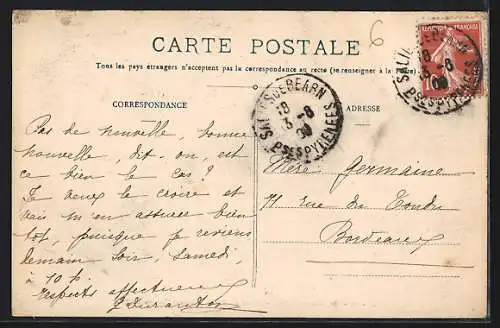 6
CARTE POSTALE
Tous les pays étrangers n'acceptent pas la correspondance au recto (se renseigner à la Poste)
CORRESPONDANCE
ADRESSE
SALIES-DE-BEARN
18
13 -8
09
PSES PYRENEES
SALIES-DE-BEARN
18
13 -8
09
PSES PYRENEES
10
Pas de nouvelle, bonne
nouvelle, dit-on, est
ce bien le cas ?
Je veux le croire et
vais m'en assurer bien
tôt, puisque je reviens
demain soir, samedi,
à 10 h.
respects affectueux
Mère Germaine
71 rue du Tondu
Bordeaux